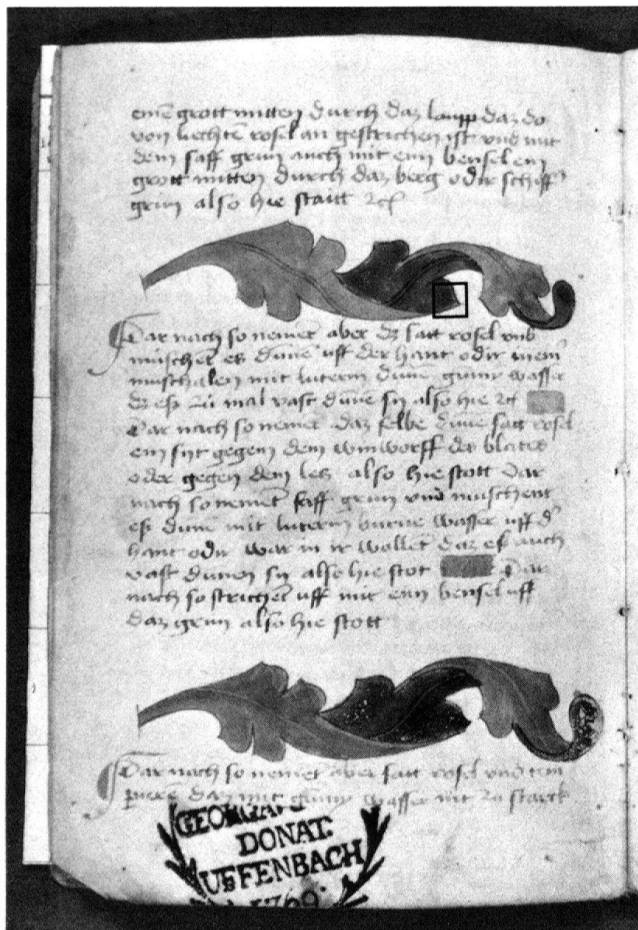 einē grott mitten durch daz laupp daz do
von liechtē rosel an gestrichen ist vnd mit
dem saff grun auch mit eim bensel ein
grott mitten durch daz berg odir schiff
grun also hie statt
Dar nach so nemēt aber dz satt rosel vnd
müschet es dūne uff der hant odir
muschalen mit luterm dūnē gumi wasser
dz eß zü mal vast dūne sy also hie
Dar nach so nemēt daz selbe dūne satt rosel
ein syt gegen dem winworff der bletter
oder gegen dem also hie stott Dar
nach so nemēt saff grun vnd müschent
eß dūne mit luterm wasser uff d'
hant odir war in ir wollet daz eß auch
vast dūnen sy also hie stot Dar
nach so strichēt uff mit eim bensel uff
daz grun also hie stott
Dar nach so nemēt aber satt rosel vnd tem
perirē daz mit gumi wasser nit zü starck
DONAT.
UFFENBACH